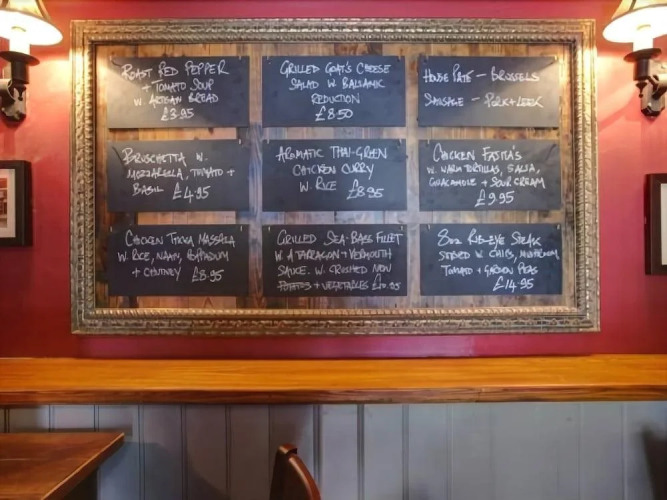 ROAST RED PEPPER
+ TOMATO SOUP
W ARTISAN BREAD
£3.95
GRILLED GOAT'S CHEESE
SALAD W BALSAMIC
REDUCTION
£8.50
HOUSE PATE - BRUSSELS
SAUSAGE - PORK + LEEK
BRUSCHETTA W.
MOZZARELLA, TOMATO +
BASIL £4.95
AROMATIC THAI-GREEN
CHICKEN CURRY
W. RICE £8.95
CHICKEN FAJITA'S
W. WARM TORTILLAS, SALSA,
GUACAMOLE + SOUR CREAM
£9.95
CHICKEN TIKKA MASSALA
W. RICE, NAAN, POPPADUM
+ CHUTNEY £8.95
GRILLED SEA-BASS FILLET
W. A TARRAGON + VERMOUTH
SAUCE. W. CRUSHED NEW
POTATOES + VEGETABLES £10.95
8oz RIB-EYE STEAK
SERVED W. CHIPS, MUSHROOM
TOMATO + GARDEN PEAS
£14.95